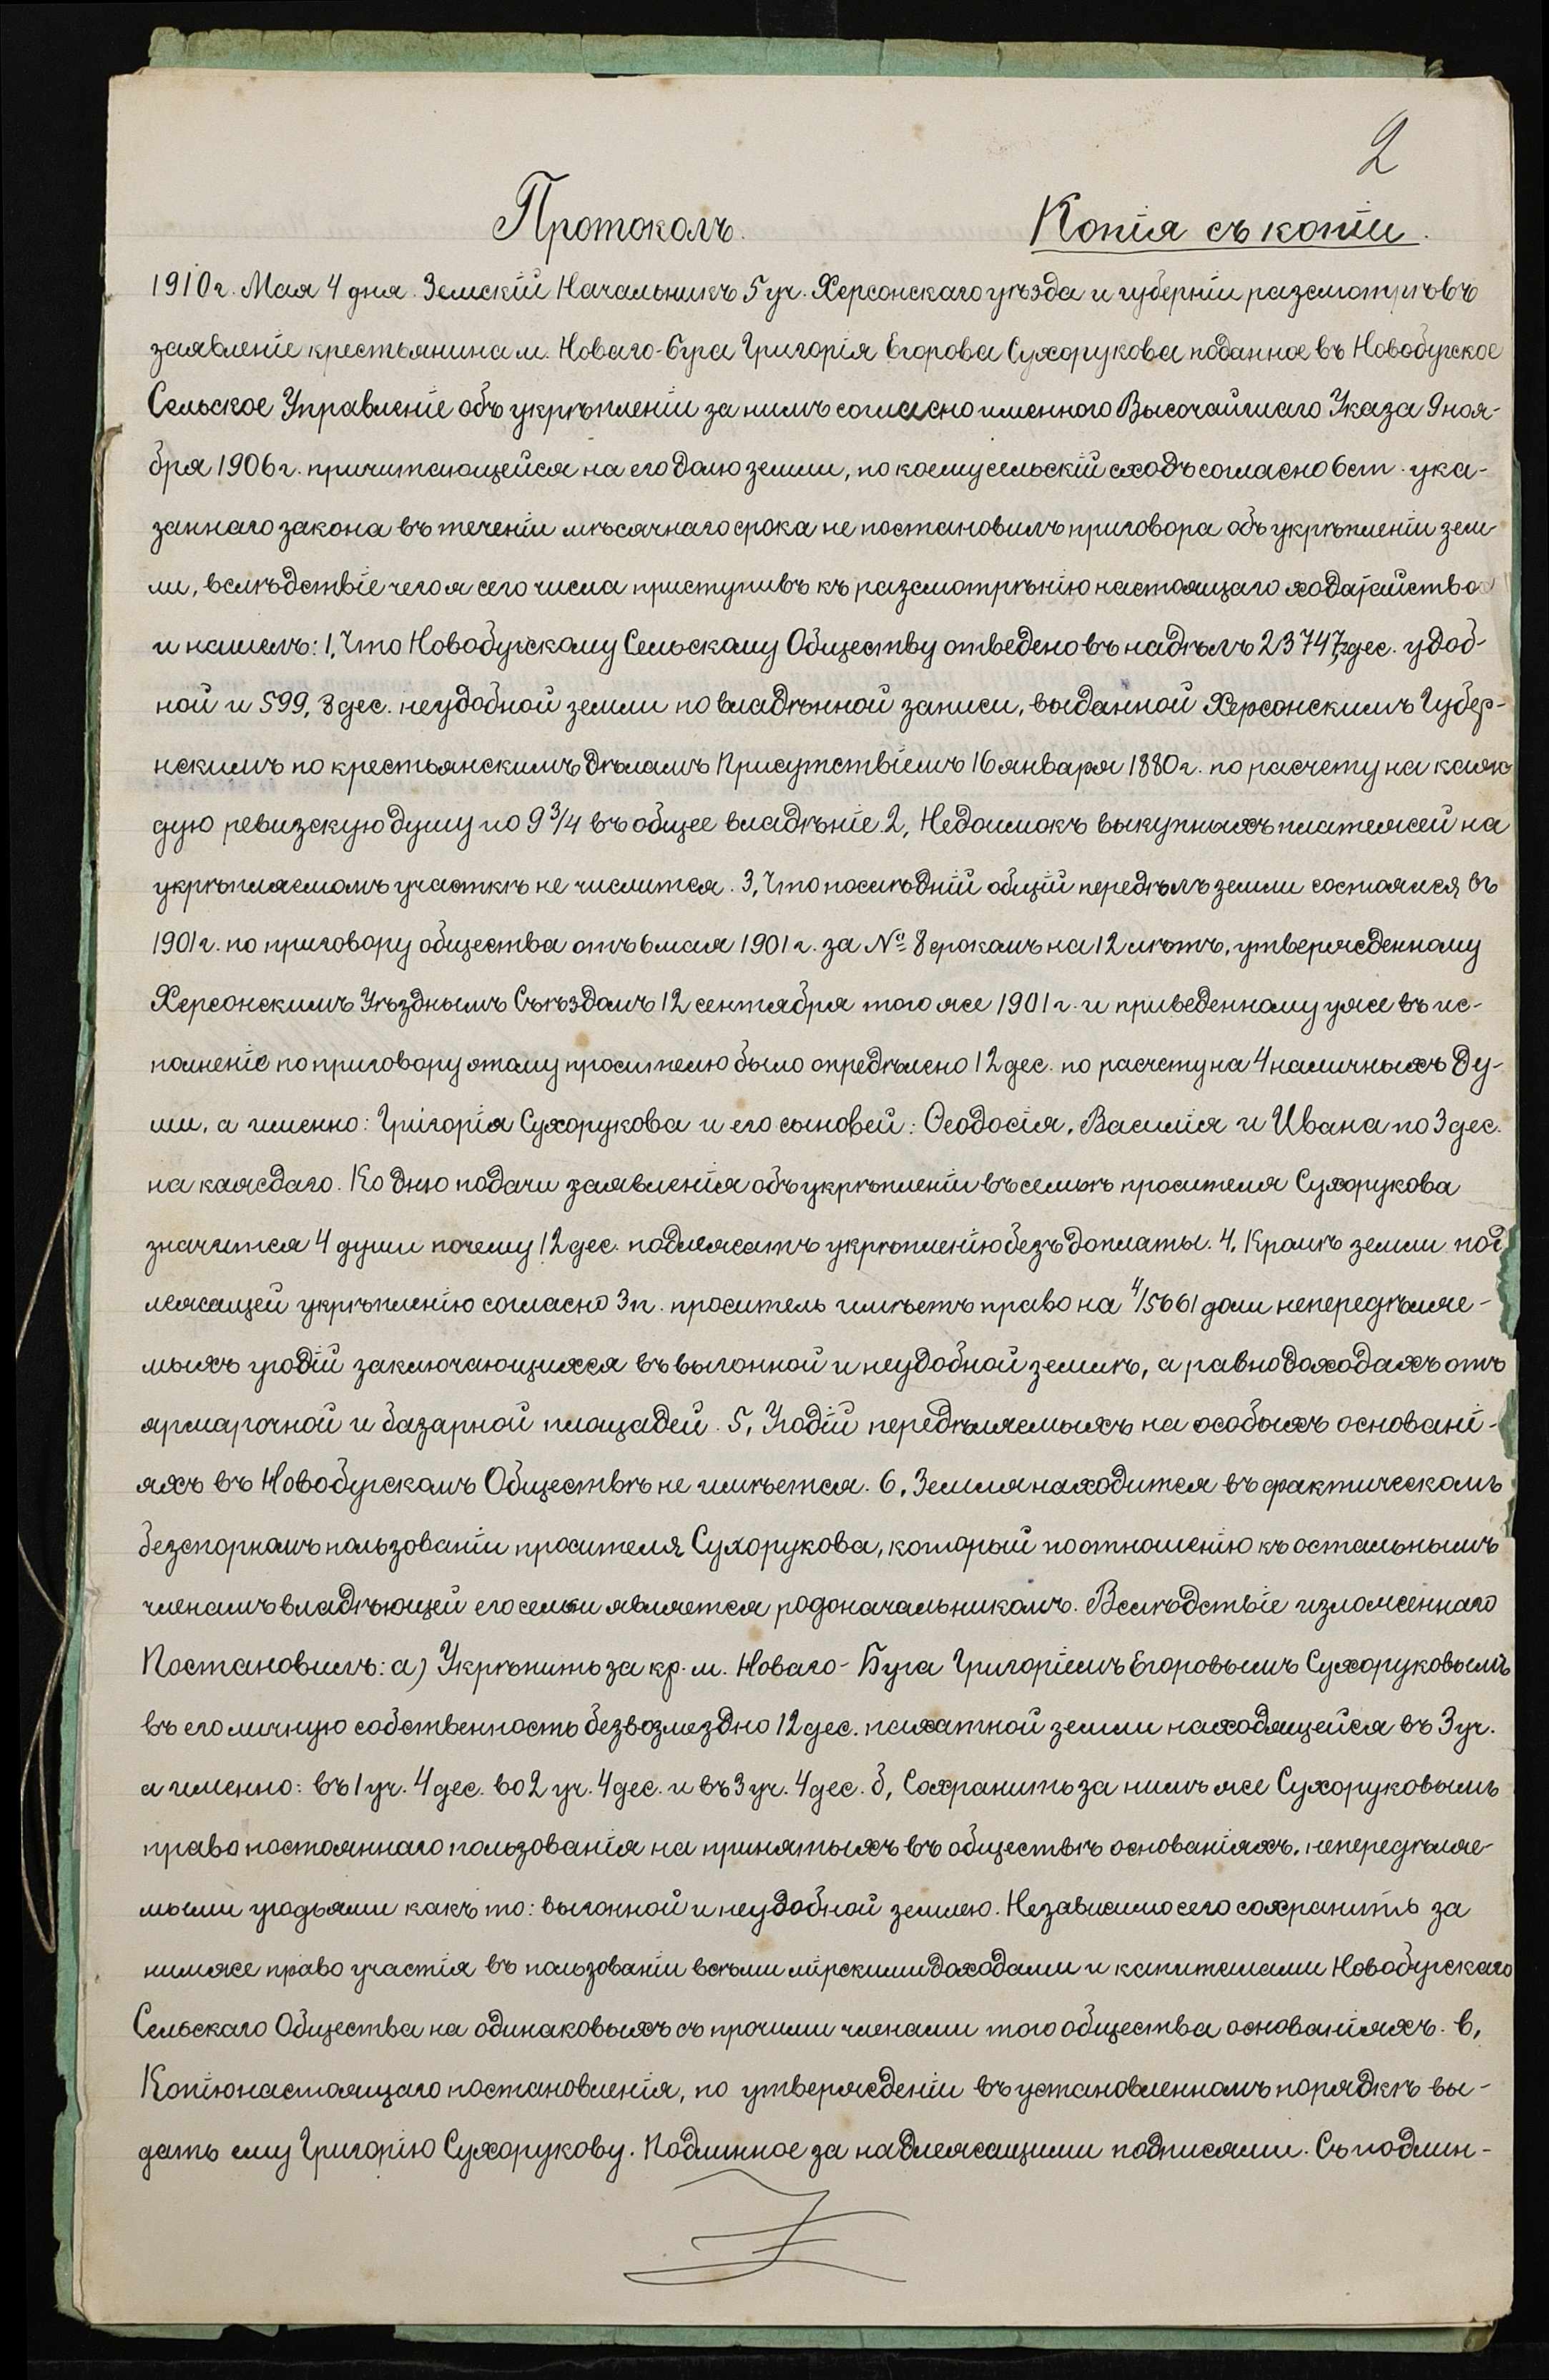 2
Протоколъ.
Копія съ копіи.
1910 г. Мая 4 дня. Земскій Начальникъ 5 уч. Херсонскаго уѣзда и губерніи разсмотрѣвъ
заявленіе крестьянина м. Новаго-Буга Григорія Егорова Сухорукова поданное въ Новобугское
Сельское Управленіе объ укрѣпленіи за нимъ согласно именного Высочайшаго Указа 9 ноя-
бря 1906 г. причитающейся на его долю земли, по коему сельскій сходъ согласно 6 ст. ука-
заннаго закона въ теченіи мѣсячнаго срока не постановилъ приговора объ укрѣпленіи зем-
ли, вслѣдствіе чего я сего числа приступивъ къ разсмотрѣнію настоящаго ходатайства
и нашелъ: 1, Что Новобугскому Сельскому Обществу отведено въ надѣлъ 23747, дес. удоб-
ной и 599, 8 дес. неудобной земли по владѣнной записи, выданной Херсонскимъ Губер-
нскимъ по крестьянскимъ дѣламъ Присутствіемъ 16 января 1880 г. по расчету на каж-
дую ревизскую душу по 9 3/4 въ общее владѣніе. 2, Недоимокъ выкупныхъ платежей на
укрѣпляемомъ участкѣ не числится. 3, Что послѣдній общій передѣлъ земли состоялся въ
1901 г. по приговору общества отъ 6 мая 1901 г. за № 8 срокомъ на 12 лѣтъ, утвержденному
Херсонскимъ Уѣзднымъ Съѣздомъ 12 сентября того же 1901 г. и приведенному уже въ ис-
полненіе по приговору этому просителю было опредѣлено 12 дес. по расчету на 4 наличныхъ ду-
ши, а именно: Григорія Сухорукова и его сыновей: Ѳеодосія, Василія и Ивана по 3 дес.
на каждаго. Ко дню подачи заявленія объ укрѣпленіи въ семьѣ просителя Сухорукова
значится 4 души почему 12 дес. подлежатъ укрѣпленію безъ доплаты. 4, Кромѣ земли под
лежащей укрѣпленію согласно 3 п. проситель имѣетъ право на 4/5661 доли непередѣляе-
мыхъ угодій заключающихся въ выгонной и неудобной землѣ, а равно доходахъ отъ
ярмарочной и базарной площадей. 5, Угодій передѣляемыхъ на особыхъ основані-
яхъ въ Новобугскомъ Обществѣ не имѣется. 6, Земля находится въ фактическомъ
безспорномъ пользованіи просителя Сухорукова, который по отношенію къ остальнымъ
членамъ владѣющей его семьи является родоначальникомъ. Вслѣдствіе изложеннаго
Постановилъ: а) Укрѣпить за кр. м. Новаго-Буга Григоріемъ Егоровымъ Сухоруковымъ
въ его личную собственность безвозмездно 12 дес. пахатной земли находящейся въ 3 уч.
а именно: въ 1 уч. 4 дес. во 2 уч. 4 дес. и въ 3 уч. 4 дес. б, Сохранить за нимъ же Сухоруковымъ
право постояннаго пользованія на принятыхъ въ обществѣ основаніяхъ, непередѣляе-
мыми угодьями какъ то: выгонной и неудобной землею. Независимо сего сохранить за
нимже право участія въ пользованіи всѣми мірскими доходами и капиталами Новобугскаго
Сельскаго Общества на одинаковыхъ съ прочими членами того общества основаніяхъ. в,
Копію настоящаго постановленія, по утвержденіи въ установленномъ порядкѣ вы-
дать ему Григорію Сухорукову. Подлинное за надлежащими подписями. Съ подлин-